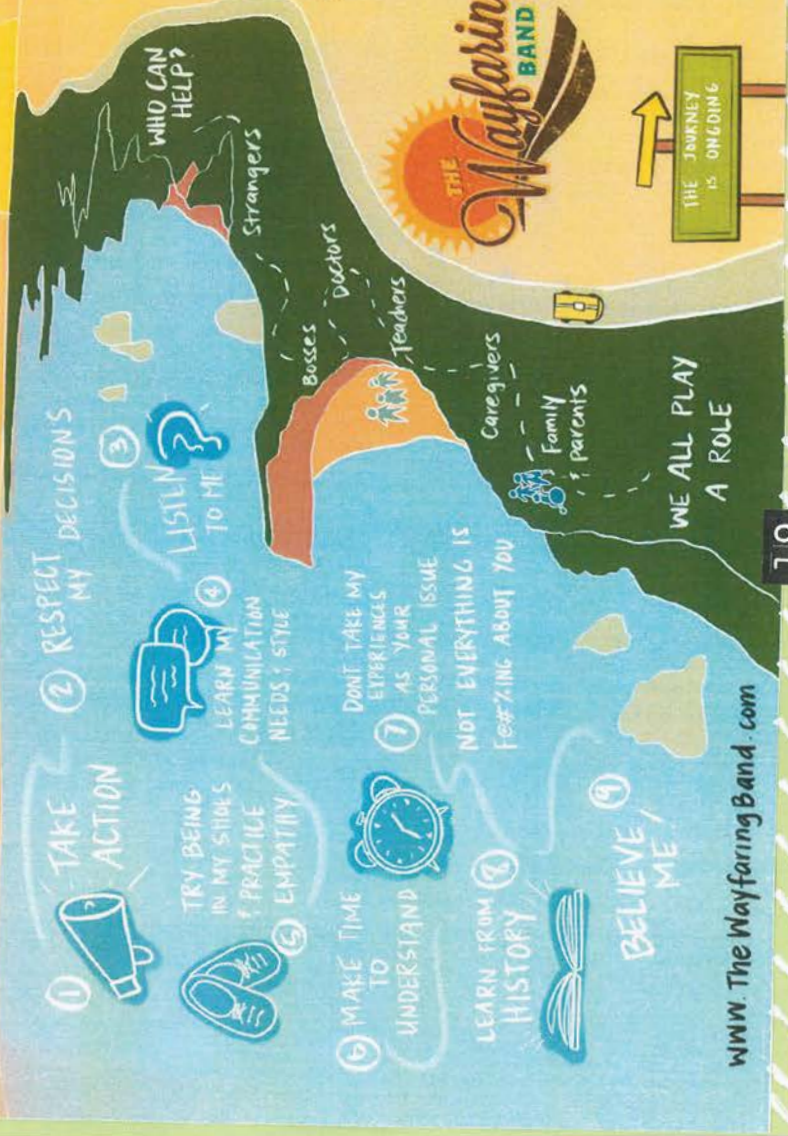 ① TAKE
ACTION
② RESPECT
MY DECISIONS
③ LISTEN
TO ME
④ LEARN MY
COMMUNICATION
NEEDS & STYLE
TRY BEING
IN MY SHOES
& PRACTICE
⑤ EMPATHY
⑥ MAKE TIME
TO
UNDERSTAND
DONT TAKE MY
EXPERIENCES
⑦ AS YOUR
PERSONAL ISSUE
NOT EVERYTHING IS
F@#%ING ABOUT YOU
LEARN FROM ⑧
HISTORY
BELIEVE ⑨
ME!
www.TheWayfaringBand.com
WHO CAN
HELP?
Strangers
Bosses
Doctors
Teachers
Caregivers
Family
& parents
WE ALL PLAY
A ROLE
THE
Wayfarin
BAND
THE JOURNEY
IS ONGOING